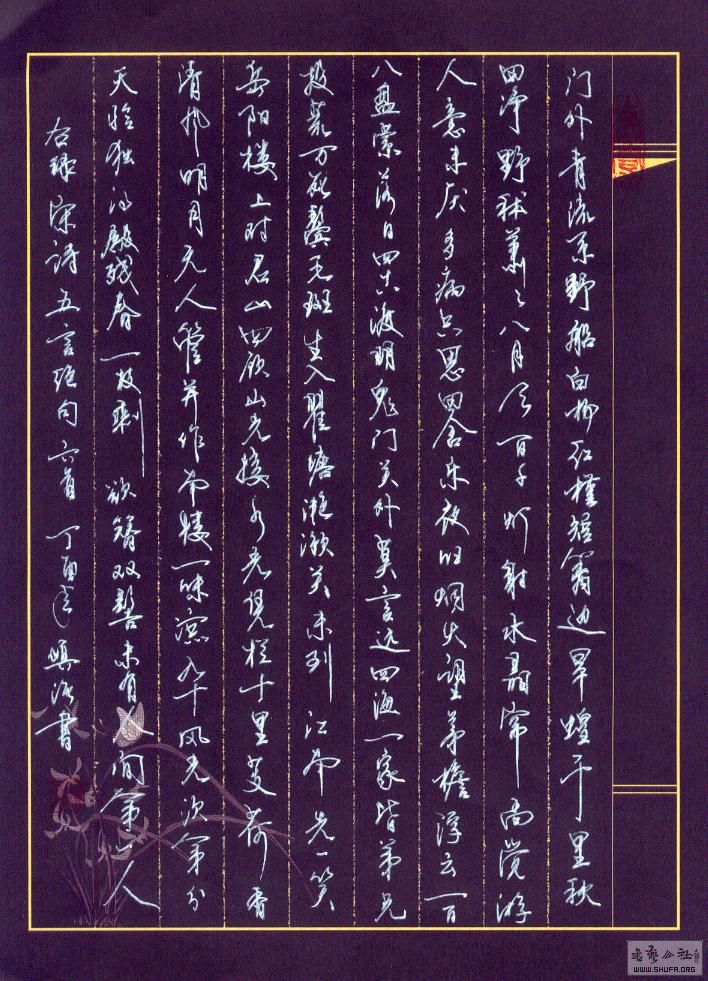 门外青流系野船白杨红槿短篱边旱蝗千里秋
田净野秫萧萧八月天百千灯射水晶帘尚觉游
人意未厌多病只思田舍乐夜归烟火望茅檐浮云一百
八盘萦落日四十八渡明鬼门关外莫言远四海一家皆弟兄
投荒万死鬓毛斑生入瞿塘滟滪关未到江南先一笑
岳阳楼上对君山四顾山光接水光凭栏十里芰荷香
清风明月无人管并作南楼一味凉九十风光次第分
天怜独得殿残春一枝剩欲簪双髻未有人间第一人
右录宋诗五言绝句六首丁酉年海书
WWW.SHUFA.ORG